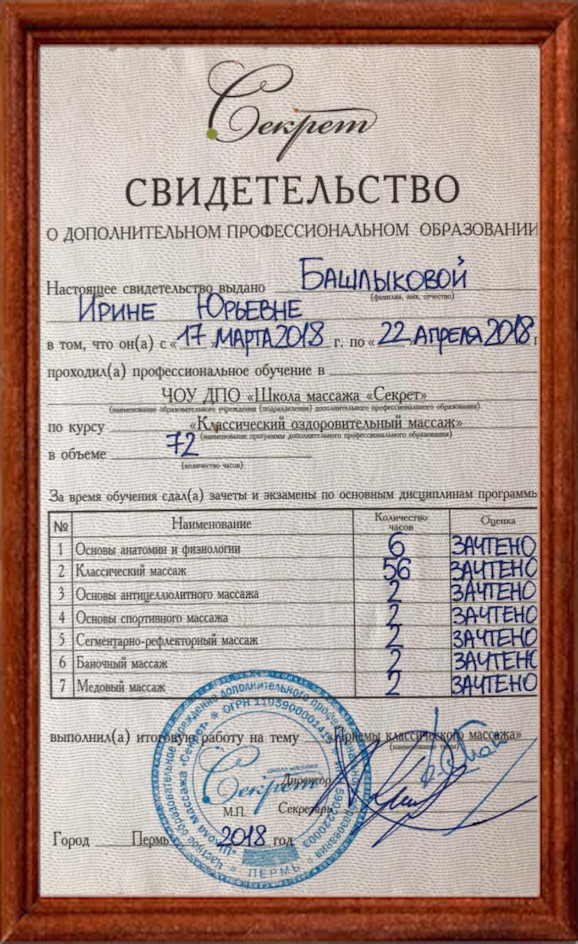 Секрет
СВИДЕТЕЛЬСТВО
О ДОПОЛНИТЕЛЬНОМ ПРОФЕССИОНАЛЬНОМ ОБРАЗОВАНИИ
Настоящее свидетельство выдано БАШЛЫКОВОЙ
(фамилия, имя, отчество)
ИРИНЕ ЮРЬЕВНЕ
в том, что он(а) с «17» МАРТА 2018 г. по «22» АПРЕЛЯ 2018 г
проходил(а) профессиональное обучение в
ЧОУ ДПО «Школа массажа «Секрет»
(наименование образовательного учреждения (подразделения) дополнительного профессионального образования)
по курсу «Классический оздоровительный массаж»
(наименование программы дополнительного профессионального образования)
в объеме 72
(количество часов)
За время обучения сдал(а) зачеты и экзамены по основным дисциплинам программы
№ Наименование Количество часов Оценка
1 Основы анатомии и физиологии 6 ЗАЧТЕНО
2 Классический массаж 56 ЗАЧТЕНО
3 Основы антицеллюлитного массажа 2 ЗАЧТЕНО
4 Основы спортивного массажа 2 ЗАЧТЕНО
5 Сегментарно-рефлекторный массаж 2 ЗАЧТЕНО
6 Баночный массаж 2 ЗАЧТЕНО
7 Медовый массаж 2 ЗАЧТЕНО
выполнил(а) итоговую работу на тему «Приемы классического массажа»
(наименование темы)
Директор
М.П. Секретарь
Город Пермь 2018 год
школа массажа
Секрет
«Школа массажа «Секрет»
ПЕРМЬ